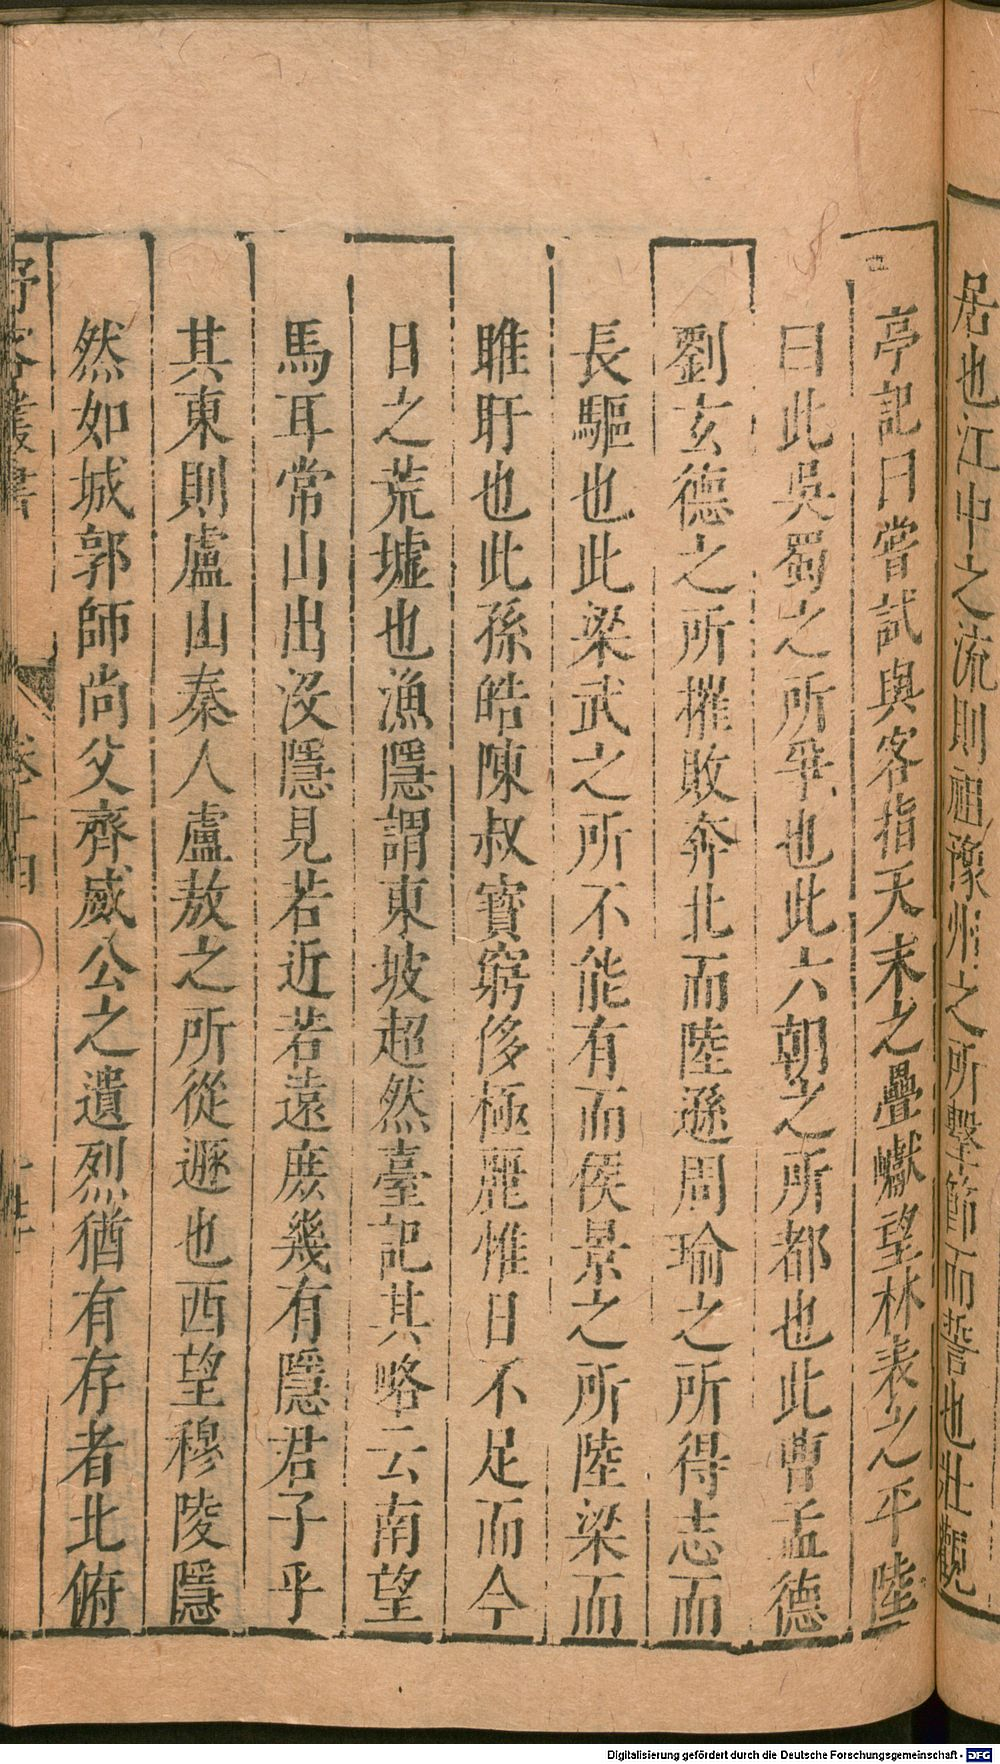 居也江中之流則祖豫州之所擊節而誓也壯觀
亭記曰嘗試與客指天末之疊巘望林表之平陸
曰此吳蜀之所爭也此六朝之所都也此曹孟德
劉玄德之所摧敗奔北而陸遜周瑜之所得志而
長驅也此梁武之所不能有而侯景之所陸梁而
睢盱也此孫皓陳叔寶窮侈極麗惟日不足而今
日之荒墟也漁隱謂東坡超然臺記其略云南望
馬耳常山出沒隱見若近若遠庶幾有隱君子乎
其東則盧山秦人盧敖之所從遯也西望穆陵隱
然如城郭師尚父齊威公之遺烈猶有存者北俯
野客叢書
卷十四
Digitalisierung gefördert durch die Deutsche Forschungsgemeinschaft - DFG